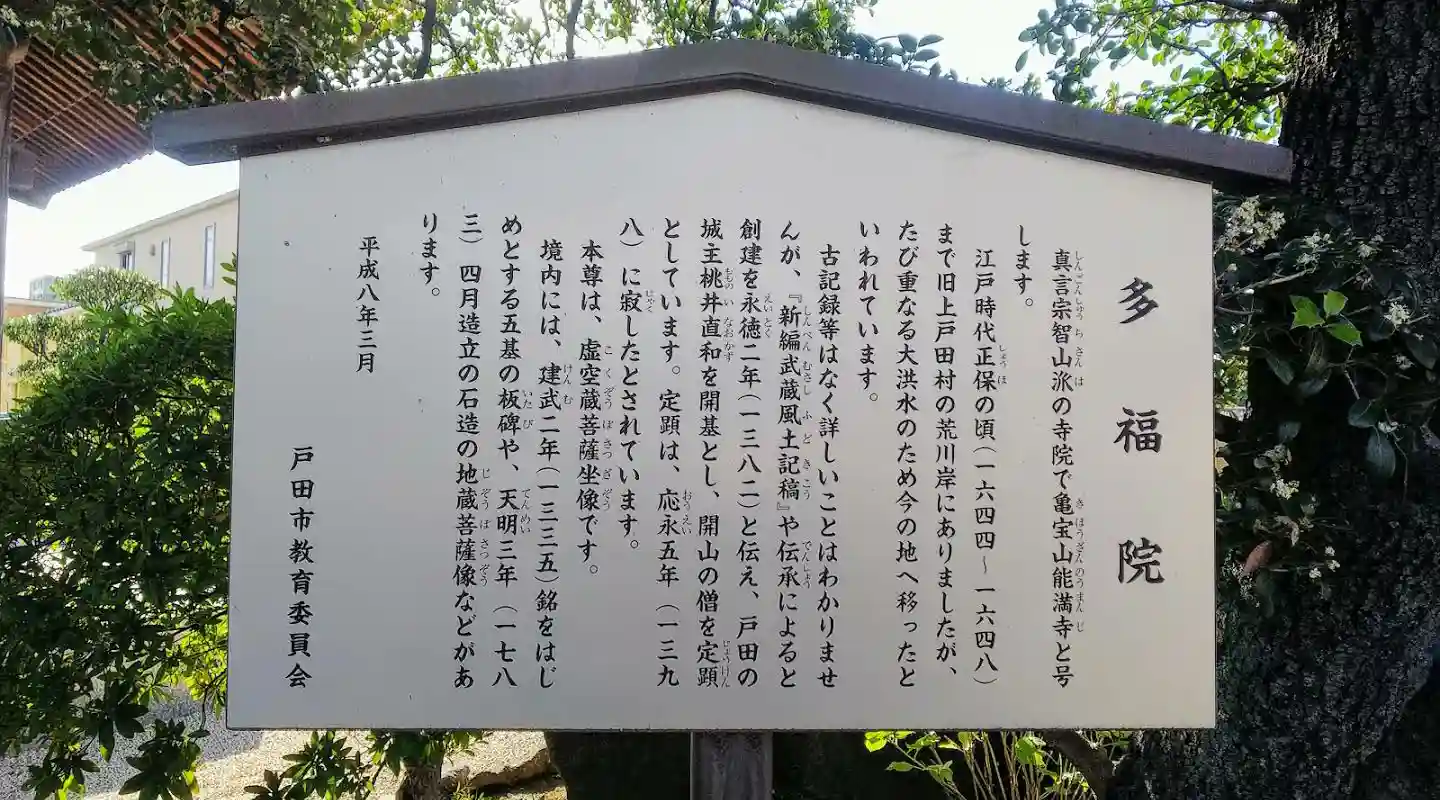 多福院
真言宗智山派の寺院で亀宝山能満寺と号
します。
江戸時代正保の頃(一六四四～一六四八)
まで旧上戸田村の荒川岸にありましたが、
たび重なる大洪水のため今の地へ移ったと
いわれています。
古記録等はなく詳しいことはわかりませ
んが、『新編武蔵風土記稿』や伝承によると
創建を永徳二年(一三八二)と伝え、戸田の
城主桃井直和を開基とし、開山の僧を定顕
としています。定顕は、応永五年(一三九
八)に寂したとされています。
本尊は、虚空蔵菩薩坐像です。
境内には、建武二年(一三三五)銘をはじ
めとする五基の板碑や、天明三年(一七八
三)四月造立の石造の地蔵菩薩像などがあ
ります。
平成八年三月
戸田市教育委員会